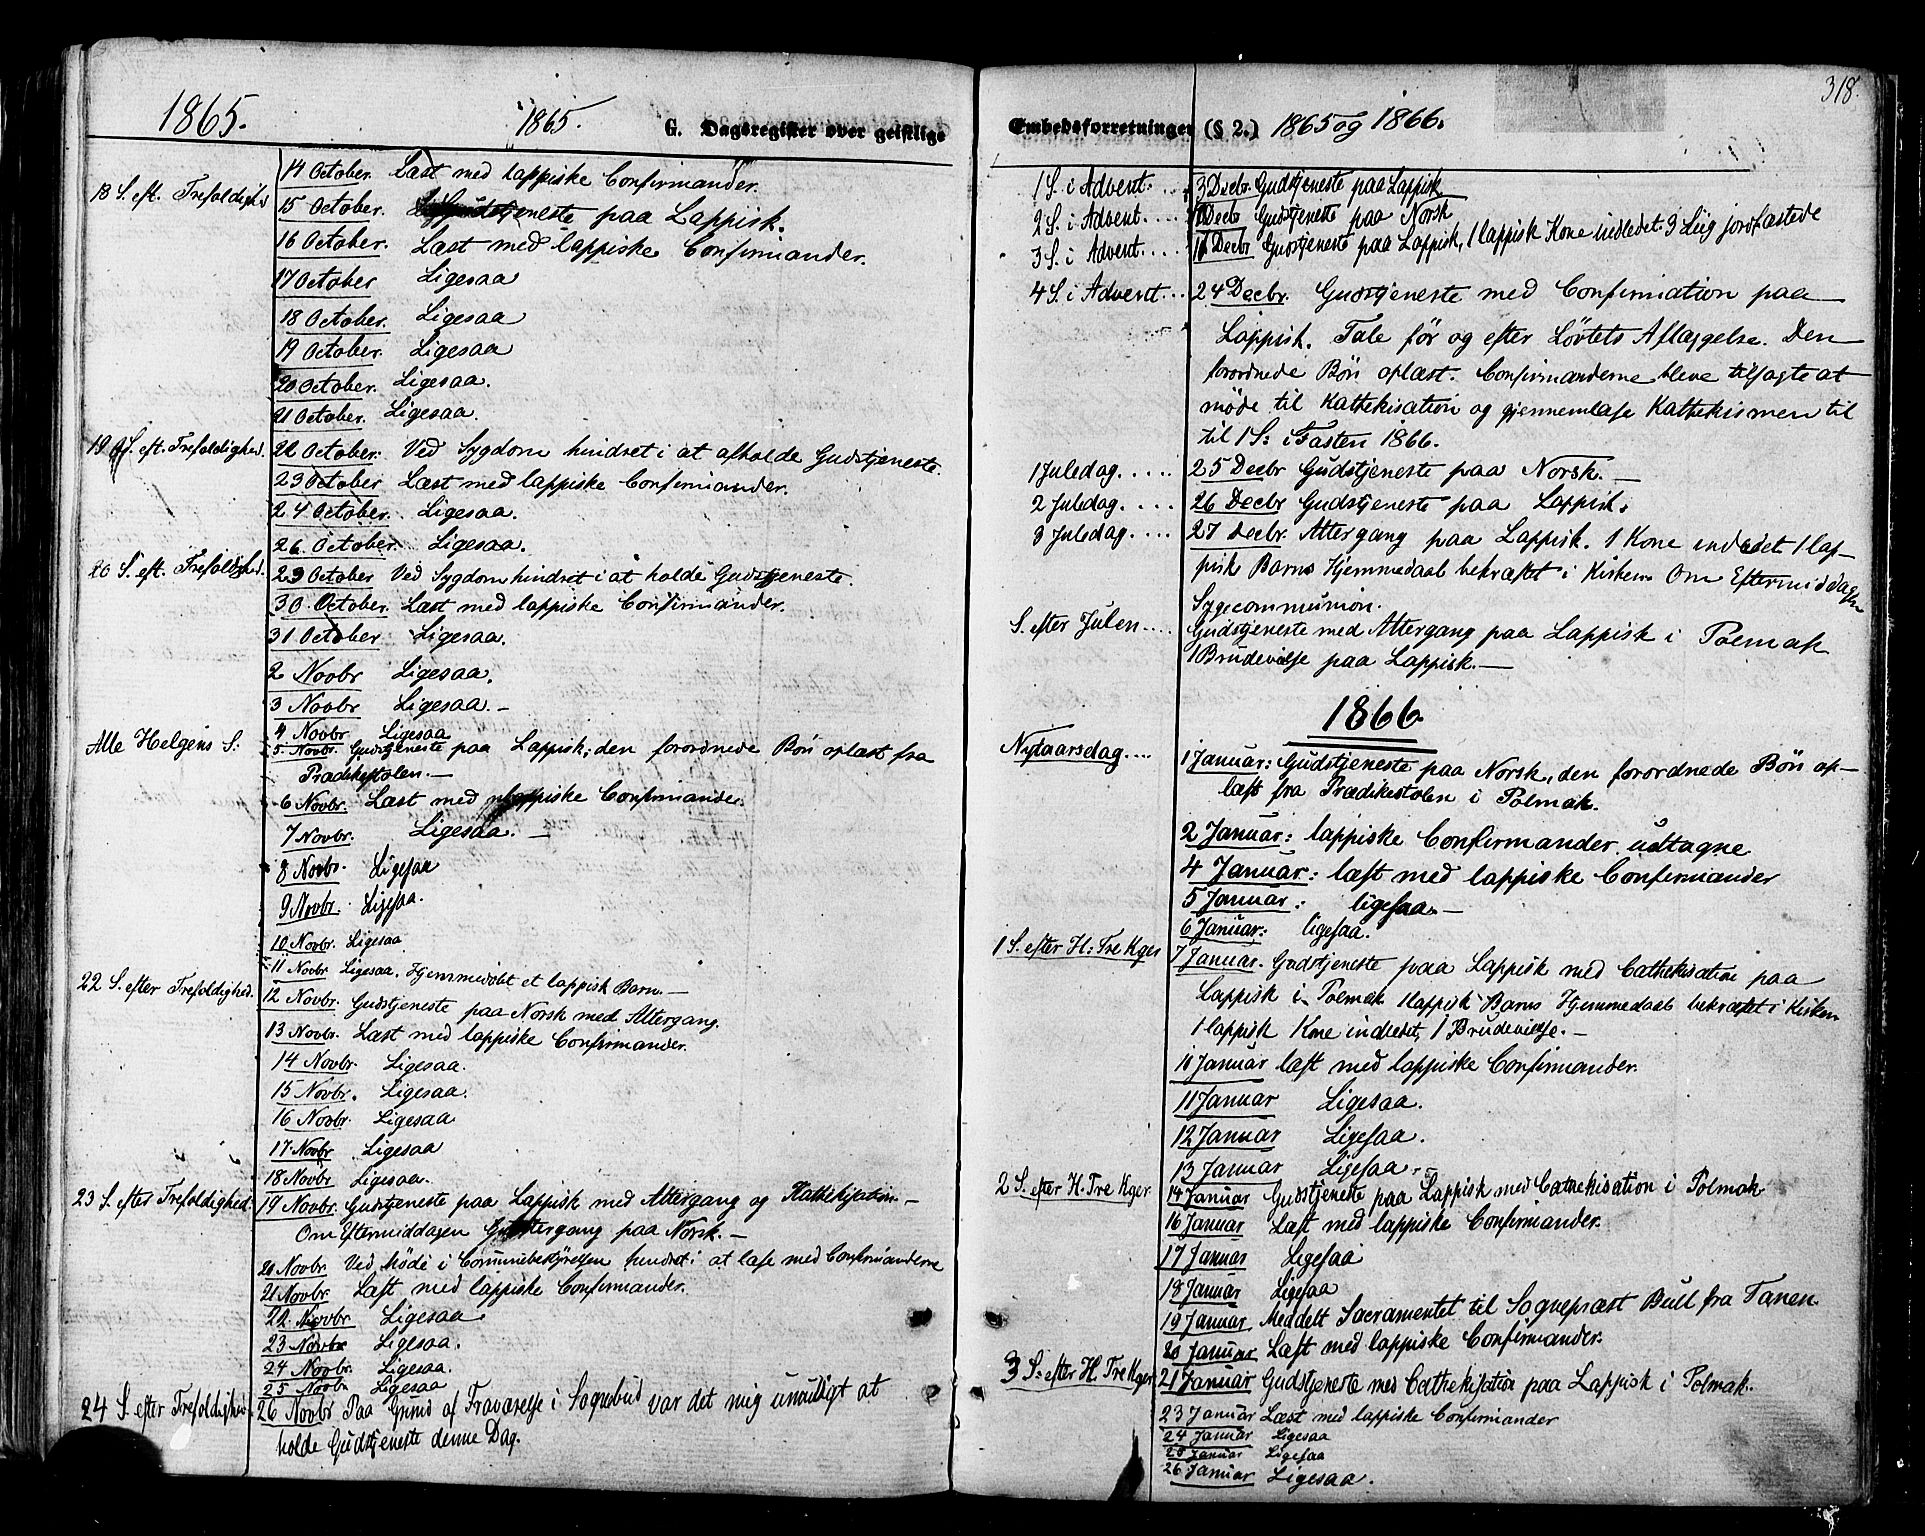 1865.
1865. G. Dagsregister over geistlige
14 October. Læst med lappiske Confirmander.
18 S. eft. Trefoldighd 15 October. Gudstjeneste paa Lappisk.
16 October. Læst med lappiske Confirmander.
17 October Ligesaa
18 October. Ligesaa
19 October. Ligesaa
20 October. Ligesaa.
21 October. Ligesaa.
19 S. eft. Trefoldighed. 22 October. Ved Sygdom hindret i at afholde Gudstjeneste.
23 October Læst med lappiske Confirmander.
24 October. Ligesaa.
26 October. Ligesaa.
20 S. eft. Trefoldighed. 29 October Ved Sygdom hindret i at holde Gudstjeneste.
30 October. Læst med lappiske Confirmander.
31 October Ligesaa.
2 Novbr Ligesaa.
3 Novbr Ligesaa. –
4 Novbr. Ligesaa
Alle Helgens S: 5 Novbr. Gudstjeneste paa Lappisk, den forordnede Bøn oplæst fra
Prædikestolen. –
6 Novbr. Læst med lappiske Confirmander.
7 Novbr. Ligesaa. –
8 Novbr. Ligesaa
9 Novbr. Ligesaa.
10 Novbr. Ligesaa.
11 Novbr Ligesaa. Hjemmedøbt et lappisk Barn. –
22 S. efter Trefoldighed. 12 Novbr. Gudstjeneste paa Norsk med Altergang.
13 Novbr. Læst med lappiske Confirmander.
14 Novbr. Ligesaa.
15 Novbr. Ligesaa.
16 Novbr. Ligesaa
17 Novbr Ligesaa
18 Novbr Ligesaa.
23 S. efter Trefoldighed. 19 Novbr. Gudstjeneste paa Lappisk med Altergang og Kathekisation. –
Om Eftermiddagen Altergang paa Norsk. –
20 Novbr. Ved Møde i Communebestyrelsen hindret i at læse med Confirmanderne
21 Novbr. Læst med lappiske Confirmander.
22 Novbr Ligesaa
23 Novbr Ligesaa.
24 Novbr. Ligesaa.
25 Novbr Ligesaa
24 S. efter Trefoldighed. 26 Novbr Paa Grund af Fraværelse i Sognebud var det mig umuligt at
holde Gudstjeneste denne Dag.
318.
Embedsforretninger (§ 2.) 1865 og 1866.
1 S. i Advent. . . . 3 Decbr. Gudstjeneste paa Lappisk.
2 S. i Advent. . . . 10 Decbr Gudstjeneste paa Norsk
3 S. i Advent. . . . Decbr Gudstjeneste paa Lappisk, 1 lappisk Kone indledet. 3 Liig jordfæstede
4 S. i Advent. . . 24 Decbr. Gudstjeneste med Confirmation paa
Lappisk. Tale før og efter Løvtets Aflæggelse. Den
forordnede Bøn oplæst. Confirmanderne bleve tilsagte at
møde til Kathekisation og gjennemlæse Kathekismen til
til 1 S: i Fasten 1866.
1 Juledag. . . . . 25 Decbr Gudstjeneste paa Norsk. –
2 Juledag. . . . . 26 Decbr Gudstjeneste paa Lappisk.
3 Juledag . . . . 27 Decbr. Altergang paa Lappisk. 1 Kone indledet 1 lap-
pisk Barns Hjemmedaab bekræftet i Kirken. Om Eftermiddagen
Sygecommunion.
S. efter Julen . . . . Gudstjeneste med Altergang paa Lappisk i Polmak
1 Brudevielse paa Lappisk. –
1866.
Nytaarsdag. . . . 1 Januar: Gudstjeneste paa Norsk, den forordnede Bøn op-
læst fra Prædikestolen i Polmak.
2 Januar: lappiske Confirmander udtagne
4 Januar: læst med lappiske Confirmander
5 Januar: ligesaa. –
6 Januar: ligesaa.
1 S. efter H: Tre Kger 7 Januar. Gudstjeneste paa Lappisk med Cathekisation paa
Lappisk i Polmak 1 lappisk Barns Hjemmedaab bekræftet i Kirken
1 lappisk Kone indledet, 1 Brudevielse. –
10 Januar læst med lappiske Confirmander.
11 Januar Ligesaa.
12 Januar Ligesaa.
13 Januar Ligesaa. –
2 S. efter H. Tre Kger. 14 Januar Gudstjeneste paa Lappisk med Cathekisation i Polmak
16 Januar Læst med lappiske Confirmander.
17 Januar Ligesaa
18 Januar Ligesaa
19 Januar Meddelt Sacramentet til Sognepræst Bull fra Tanen.
20 Januar Læst med lappiske Confirmander.
3 S: efter H. Tre Kger. 21 Januar Gudstjeneste med Cathekisation paa Lappisk i Polmak.
23 Januar Læst med lappiske Confirmander
24 Januar Ligesaa
25 Januar Ligesaa
26 Januar Ligesaa.